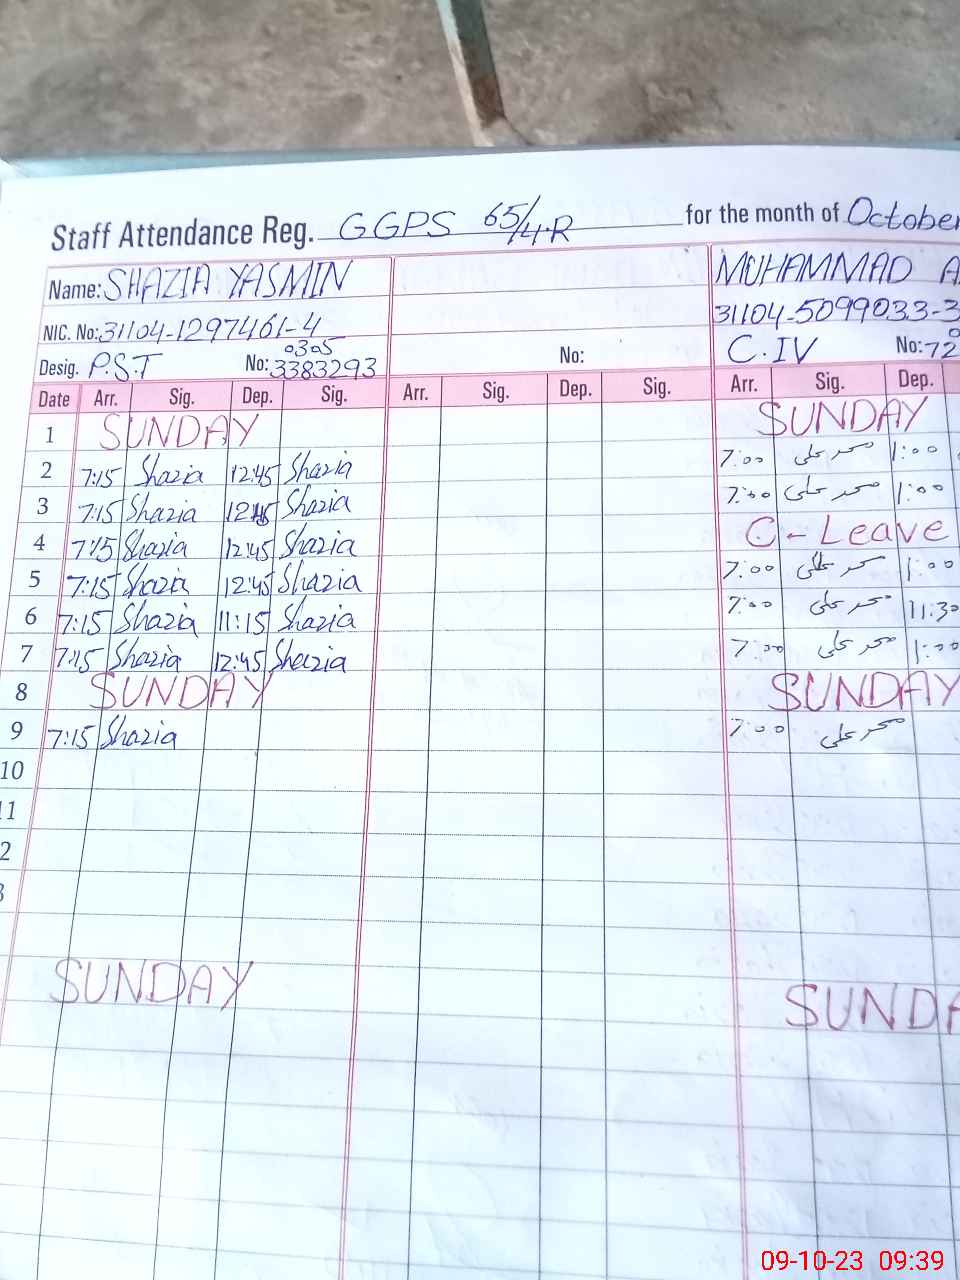 Staff Attendance Reg. GGPS 65/4-R for the month of October
Name: SHAZIA YASMIN MUHAMMAD A
NIC. No: 31104-1297461-4 31104-5099033-3
Desig. P.S.T No: 0305 3383293 No: C.IV No: 72
Date Arr. Sig. Dep. Sig. Arr. Sig. Dep. Sig. Arr. Sig. Dep.
1 SUNDAY SUNDAY
2 7:15 Shazia 12:45 Shazia 7:00 محمد علی 1:00
3 7:15 Shazia 12:45 Shazia 7:00 محمد علی 1:00
4 7:15 Shazia 12:45 Shazia C-Leave
5 7:15 Shazia 12:45 Shazia 7:00 محمد علی 1:00
6 7:15 Shazia 11:15 Shazia 7:00 محمد علی 11:30
7 7:15 Shazia 12:45 Shazia 7:00 محمد علی 1:00
8 SUNDAY SUNDAY
9 7:15 Shazia 7:00 محمد علی
10
11
2
3
SUNDAY SUNDA
09-10-23 09:39